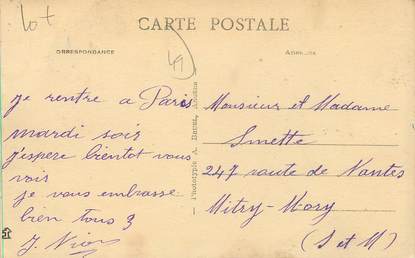 Lot
CARTE POSTALE
CORRESPONDANCE
49
je rentre a Paris
mardi soir
j'espere bientot vous
voir
je vous embrasse
bien tous 3
J.
Phototypie A.
Monsieur et Madame
Smette
247 route de Nantes
Mitry-Mory
(S et M)